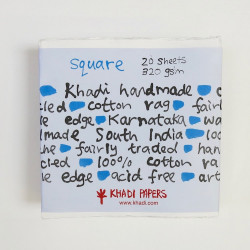 square 20 sheets
320 gsm
Khadi handmade
cled cotton rag fairl
edge Karnataka wa
dmade South India 100
the fairly traded han
cled 100% cotton ra
le edge acid free art
KHADI PAPERS
www.khadi.com